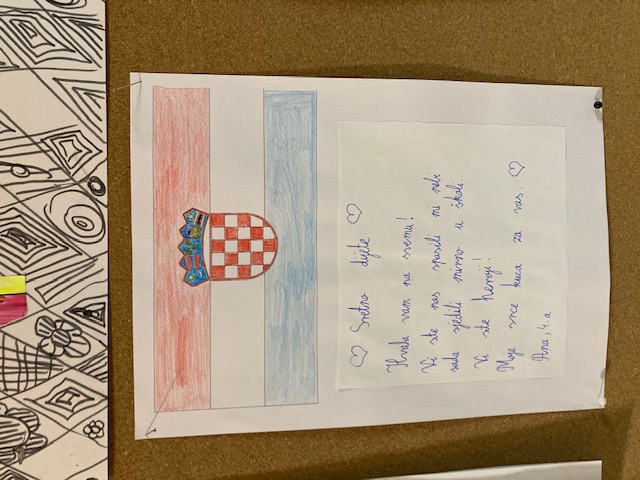 ♡ Sretno dijete ♡
Hvala vam na svemu!
Vi ste nas spasili mi nebi
sada sjedili mirno u školi.
Vi ste heroji!
Moje srce kuca za vas. ♡
Ana, 4.a